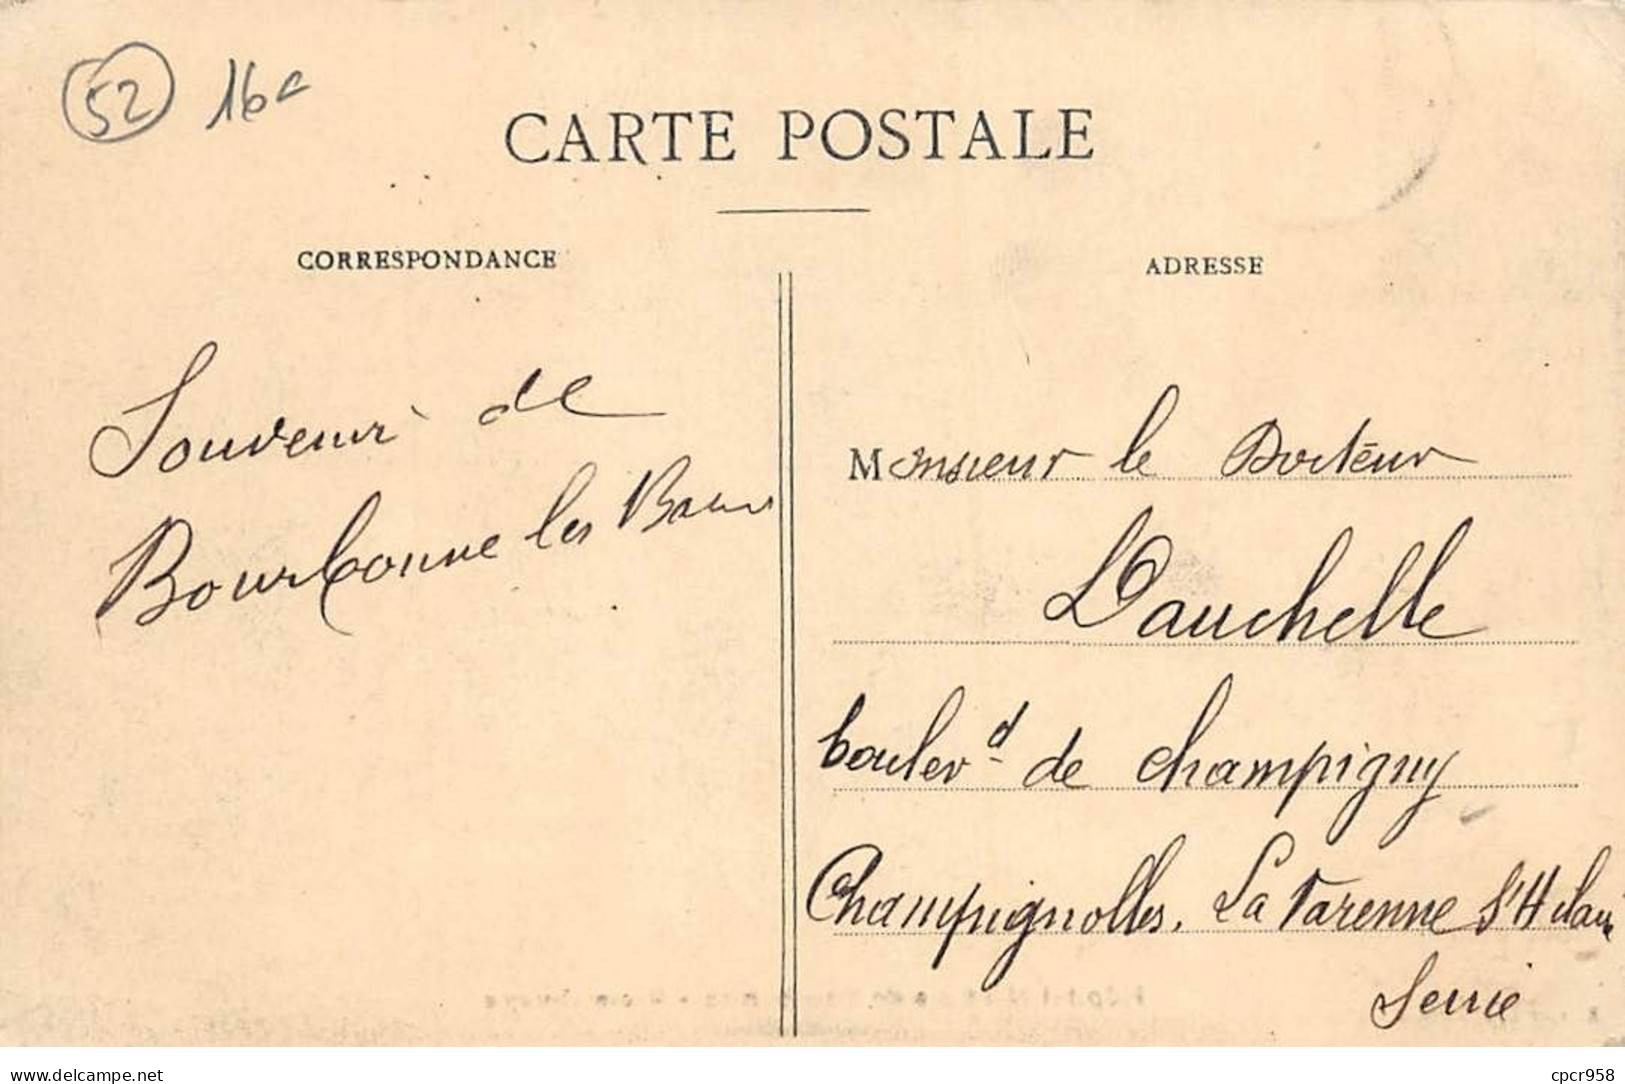 52 16c
CARTE POSTALE
CORRESPONDANCE
ADRESSE
Souvenir de
Bourbonne les Bains
Monsieur le Docteur
Dauchelle
boulevd de Champigny
Champignolles, La Varenne St Hilaire
Seine
delcampe.net
cpcr958